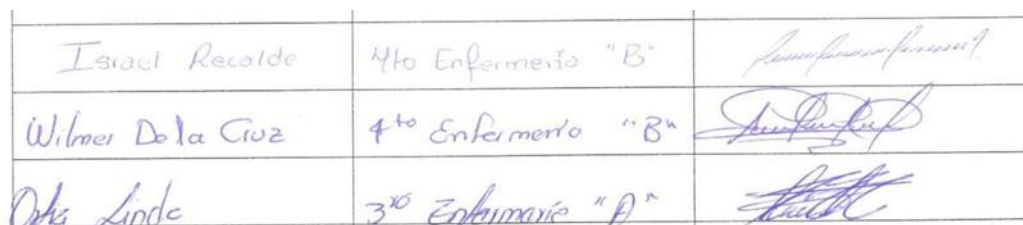 Israel Recalde 4to Enfermería "B"
Wilmer De la Cruz 4to Enfermería "B"
Linda 3ro Enfermería "A"